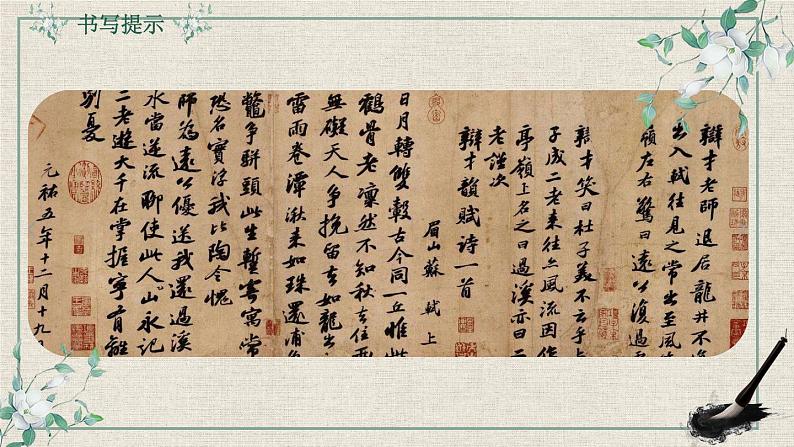 书写提示
辯才老師退居龍井不
出入軾往見之常出至風
嶺左右驚曰遠公復過
辯才笑曰杜子美不云乎
子成二老来往亦風流因作
亭嶺上名之曰過溪亦曰二
老謹次
辯才韻賦詩一首
眉山蘇軾上
日月轉雙轂古今同一丘惟此
鶴骨老凛然不知秋去住
無礙天人争挽留去如龍出
雷雨卷潭湫来如珠還浦
鼈争駢頭此生暫寄寓常
恐名實浮我比陶令愧
師為遠公優送我還過溪
水當逆流聊使此人山永記
二老遊大千在掌握寧有離
別憂
元祐五年十二月十九